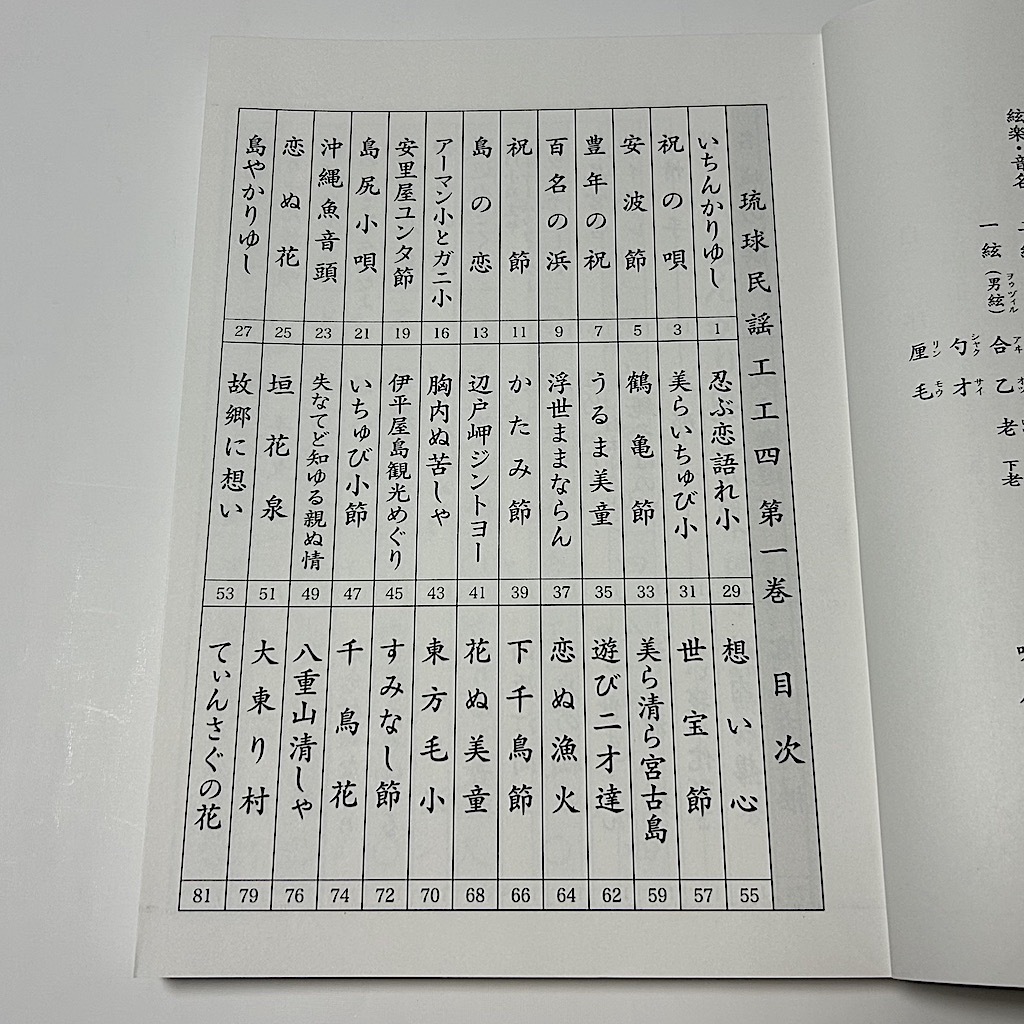 琉球民謡工工四第一巻 目次
いちんかりゆし 1
祝の唄 3
安波節 5
豊年の祝 7
百名の浜 9
祝節 11
島の恋 13
アーマン小とガニ小 16
安里屋ユンタ節 19
島尻小唄 21
沖縄魚音頭 23
恋ぬ花 25
島やかりゆし 27
忍ぶ恋語れ小 29
美らいちゅび小 31
鶴亀節 33
うるま美童 35
浮世ままならん 37
かたみ節 39
辺戸岬ジントヨー 41
胸内ぬ苦しゃ 43
伊平屋島観光めぐり 45
いちゅび小節 47
失なてど知ゆる親ぬ情 49
垣花泉 51
故郷に想い 53
想い心 55
世宝節 57
美ら清ら宮古島 59
遊び二才達 62
恋ぬ漁火 64
下千鳥節 66
花ぬ美童 68
東方毛小 70
すみなし節 72
千鳥花 74
八重山清しゃ 76
大東り村 79
てぃんさぐの花 81
絃楽・音名
一絃(男絃)ヲゥヅィル
合 乙 老 下老
勺シャク 才サイ
厘リン 毛モウ